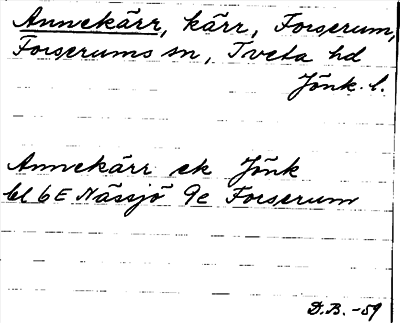 Annekärr, kärr, Forserum,
Forserums sn, Tveta hd
Jönk. l.
Annekärr ek Jönk
bl 6E Nässjö 9e Forserum
D.B. -59